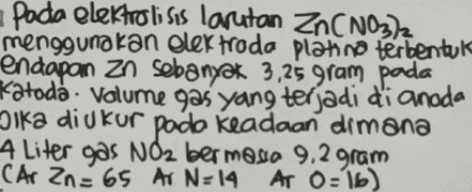 Pada elektrolisis larutan Zn(NO3)2
menggunakan elektroda platina terbentuk
endapan Zn sebanyak 3,25 gram pada
Katoda. Volume gas yang terjadi di anoda
Jika diukur pada keadaan dimana
4 Liter gas NO2 bermassa 9,2 gram
(Ar Zn = 65 Ar N=14 Ar O=16)